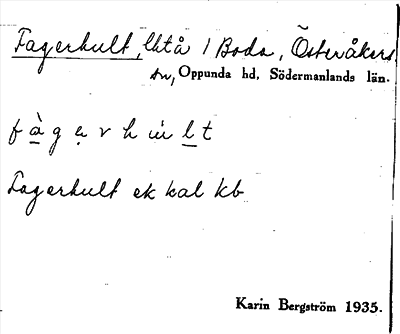 Fagerhult, lht å / Boda, Österåkers
sn, Oppunda hd, Södermanlands län.
f à g e r h u l t
Fagerhult ek kal kb
Karin Bergström 1935.